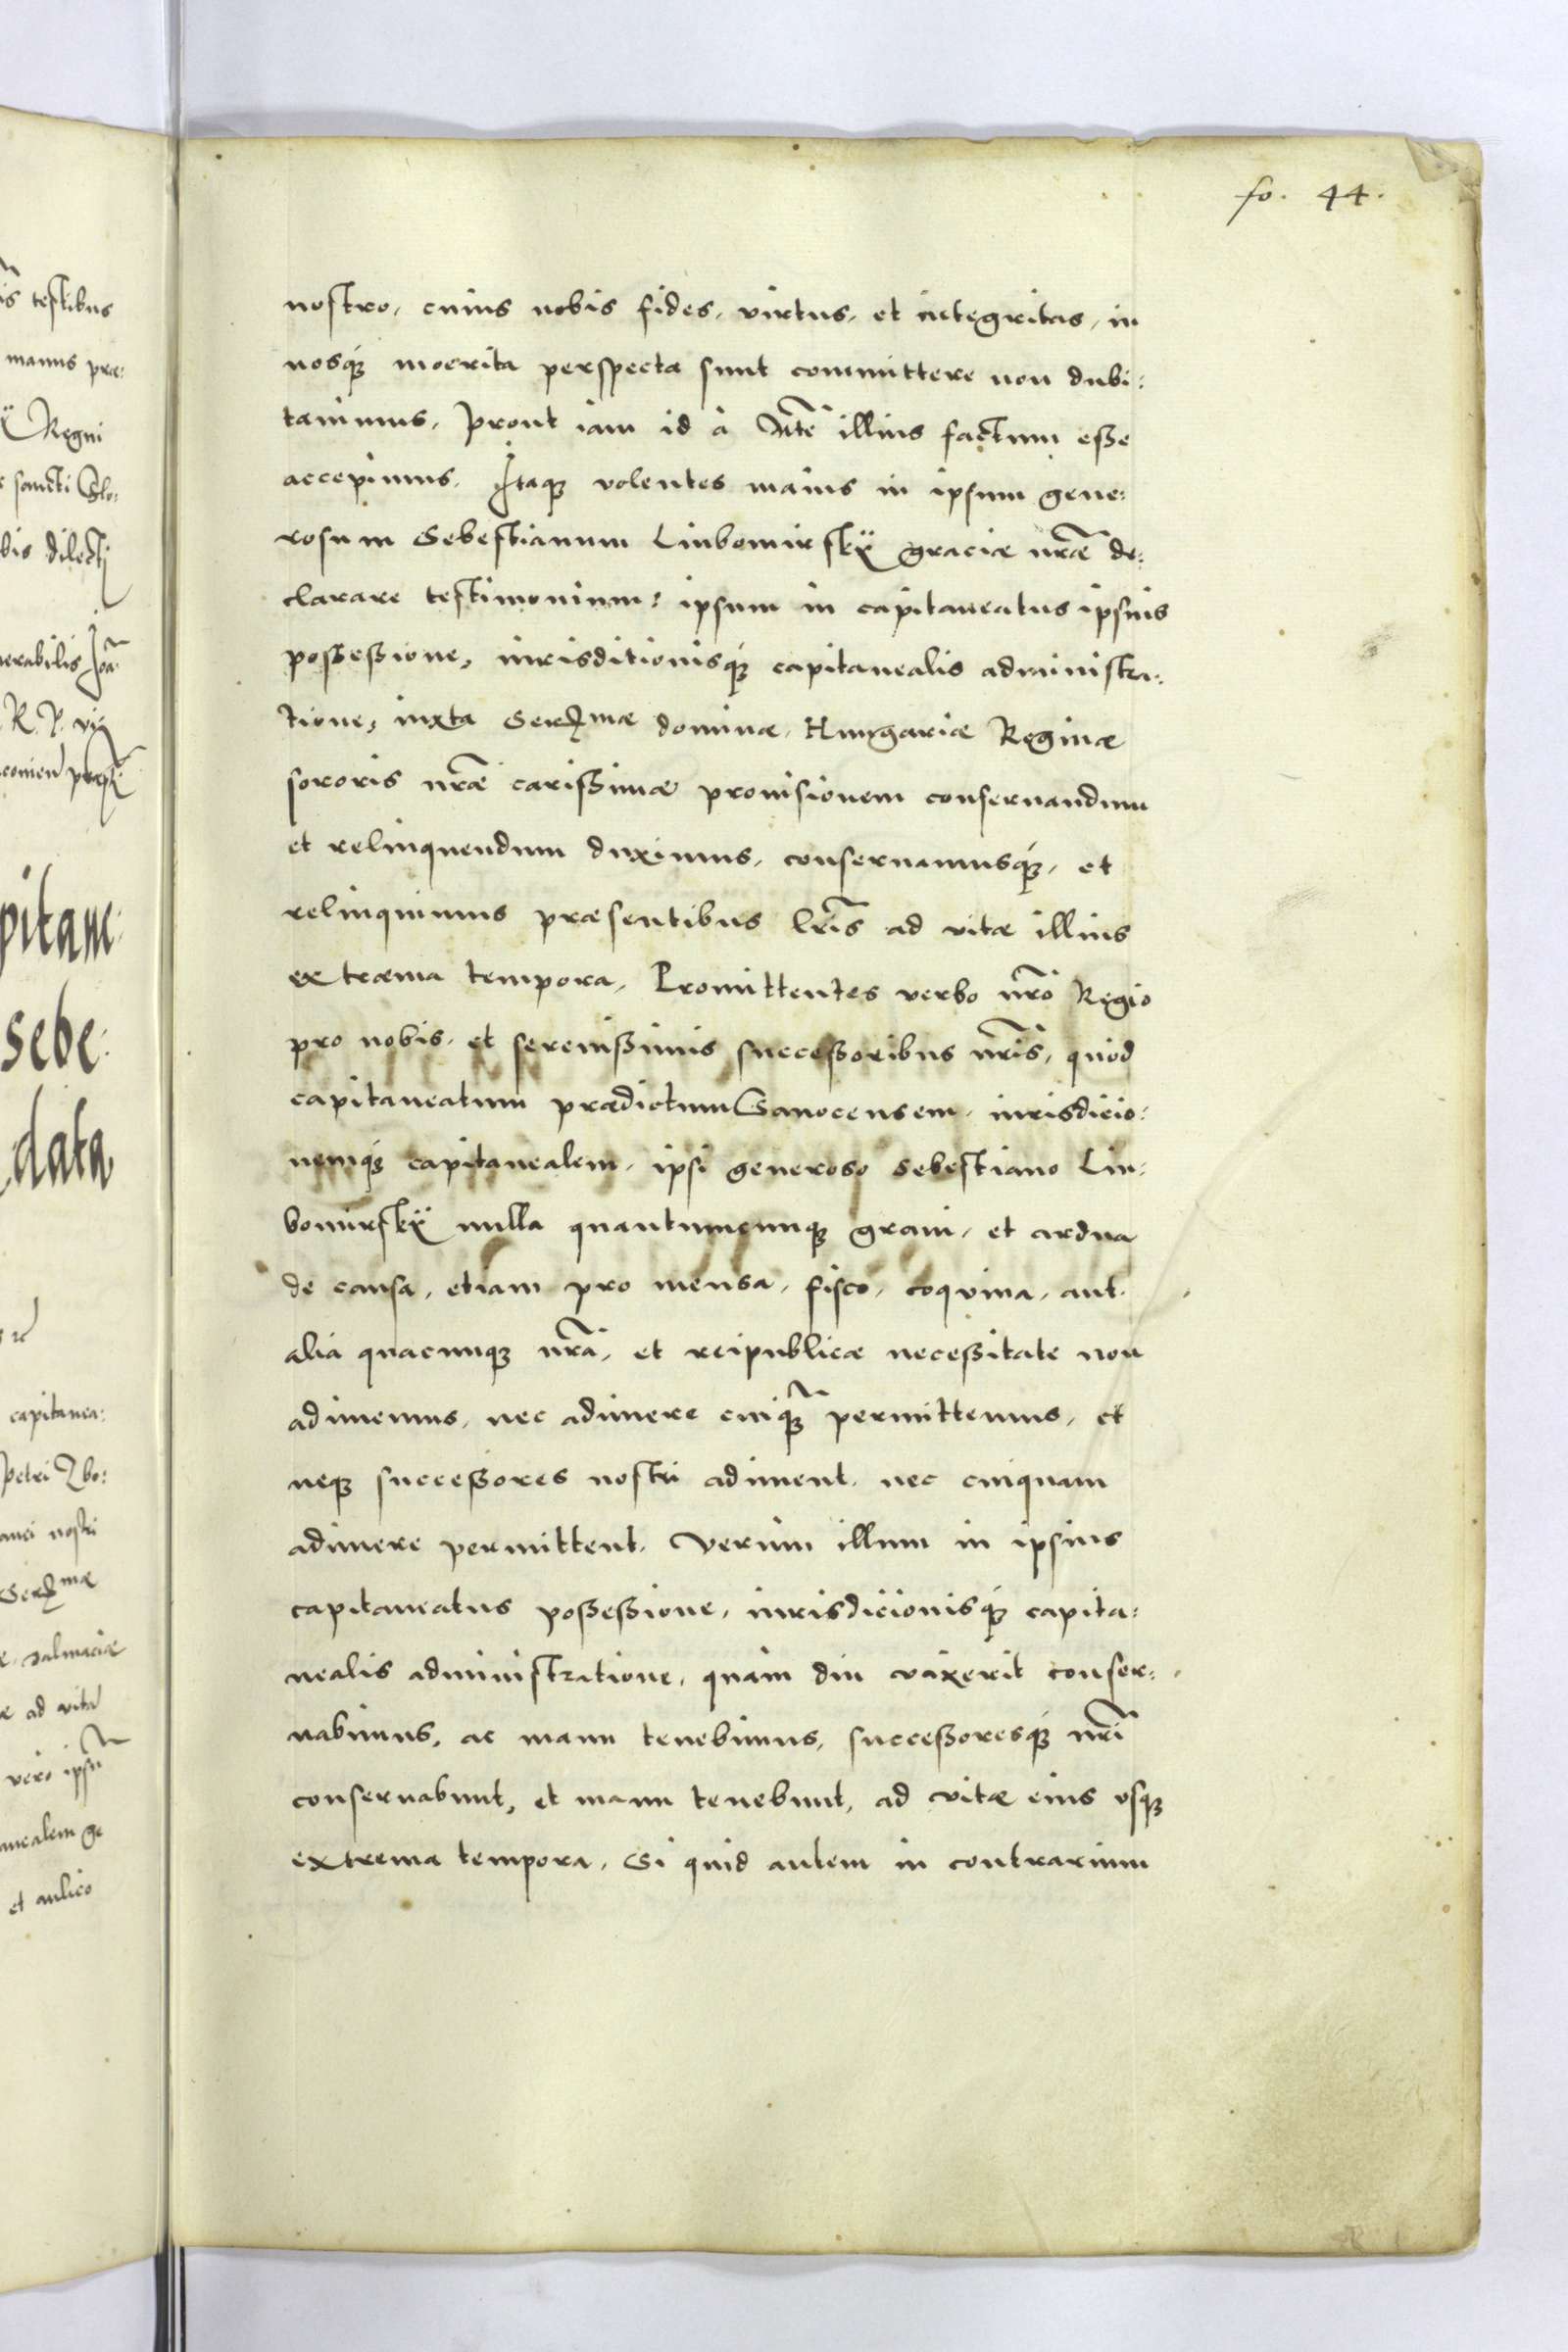 fo. 44.
nostro, cuius nobis fides, virtus, et integritas, in
nosq́; moerita perspecta sunt committere non dubi:
tauimus, Prout iam id à Mte illius factum esse
accepimus. Itaq; volentes maius in ipsum gene:
rosum Sebestianum Liubomirskÿ graciæ nræ de:
clarare testimonium: ipsum in capitaneatus ipsius
possessione, iurisditionisq́; capitanealis administra:
tione, iuxta Serͫmæ dominæ, Hungariæ Reginæ
sororis nræ carissimæ prouisionem conseruandum
et relinquendum duximus, conseruamusq́;, et
relinquimus præsentibus lris ad vitæ illius
extræma tempora, Promittentes verbo nro Regio
pro nobis, et serenissimis successoribus nris, quod
capitaneatum prædictum Sanocensem, iurisdicio:
nemq́; capitanealem, ipsi generoso Sebestiano Liu:
bomirskÿ nulla quantumcunq; graui, et ardua
de causa, etiam pro mensa, fisco, coquina, aut
alia quacunq; nra, et reipublicæ necessitate non
adimemus, nec adimere cuiq; permittemus, et
neq; successores nostri adiment, nec cuiquam
adimere permittent. Verùm illum in ipsius
capitaneatus possessione, iurisdicionisq́; capita:
nealis administratione, quam diu vixerit conser:
uabimus, ac manu tenebimus, successoresq́; nri
conseruabunt, et manu tenebunt, ad vitæ eius vsq;
extrema tempora, Si quid autem in contrarium
testibus
manus præ:
Regni
sancti Flo:
bis dilecti
nerabilis Joa
R. P. vi
pitane:
sebe:
data
capitanea:
Petri Zbo:
anei nostri
Serͫmæ
æ, Dalmaciæ
æ ad vitã
vero ipsũ
anealem ge
et aulico